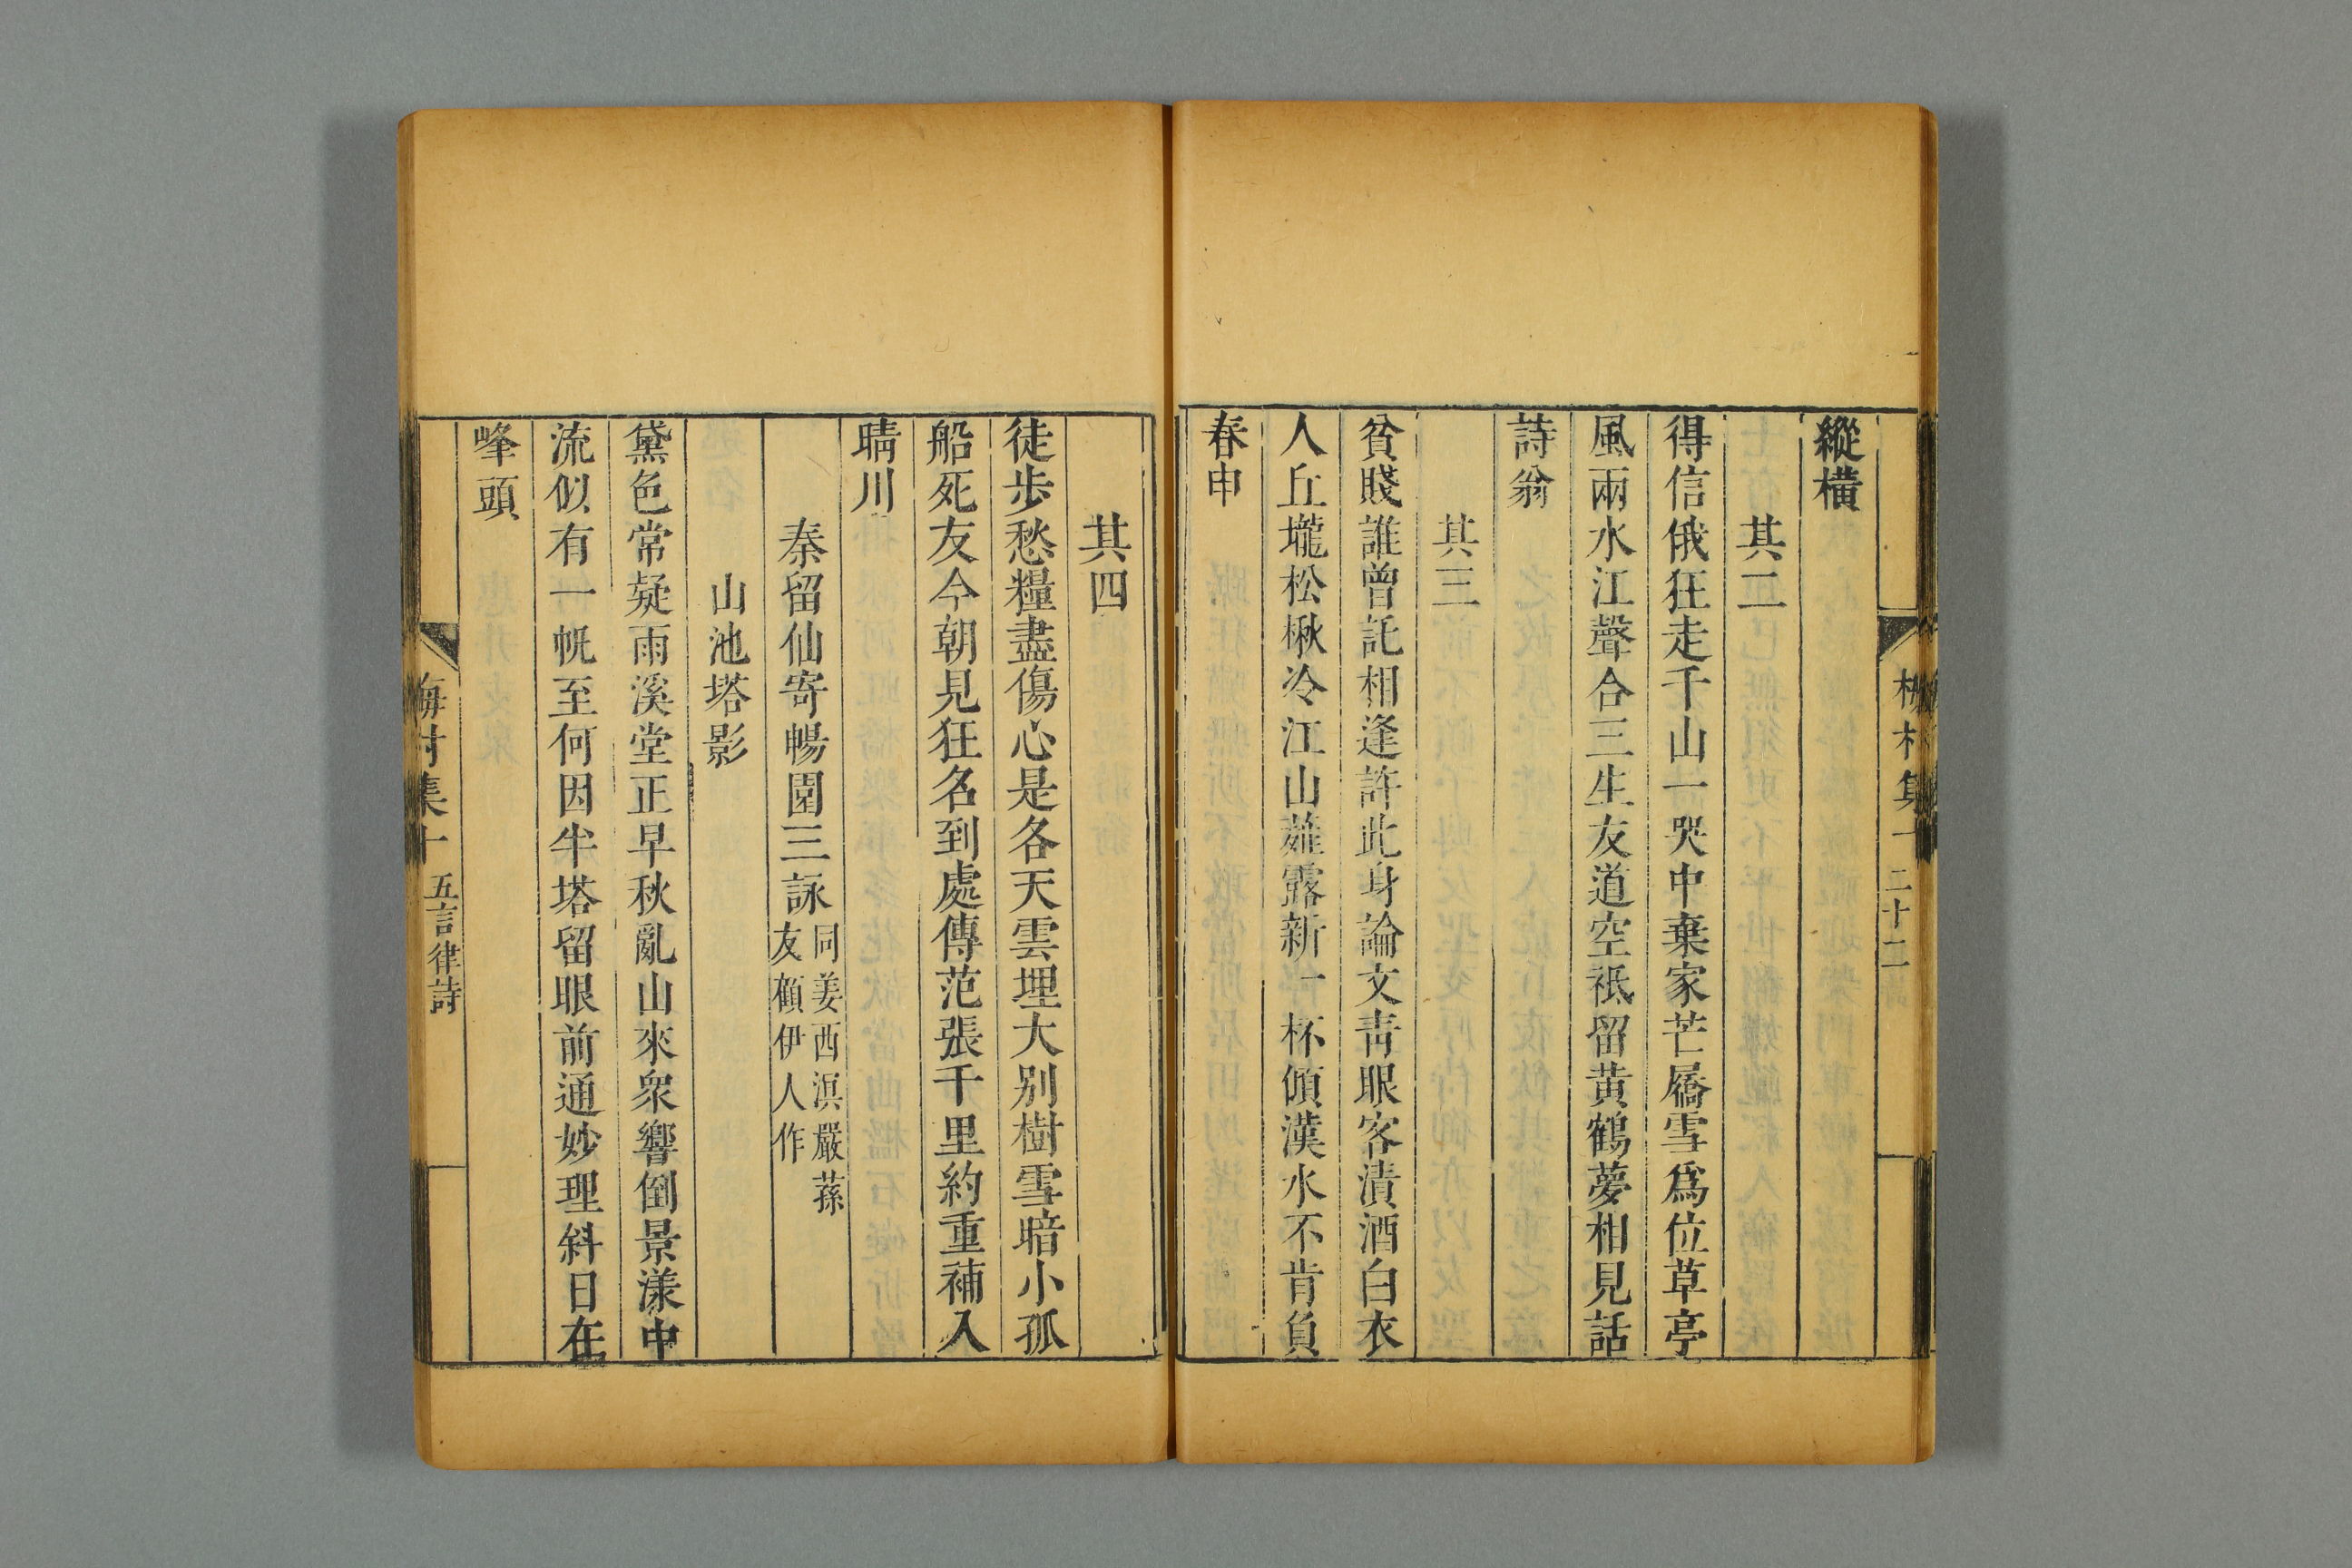 縱橫
其二
得信俄狂走千山一哭中棄家芒屩雪爲位草亭
風兩水江聲合三生友道空祗留黄鶴夢相見話
詩翁
其三
貧賤誰曾託相逢許此身論文靑眼客漬酒白衣
人丘壠松楸冷江山薤露新一杯傾漢水不肯負
春申
二十二
其四
徒步愁糧盡傷心是各天雲埋大别樹雪暗小孤
船死友今朝見狂名到處傳范張千里約重補入
晴川
秦留仙寄暢園三詠同姜西溟嚴蓀
友顧伊人作
山池塔影
黛色常疑雨溪堂正早秋亂山來衆響倒景漾中
流似有一帆至何因半塔留眼前通妙理斜日在
峰頭
梅村集十
五言律詩